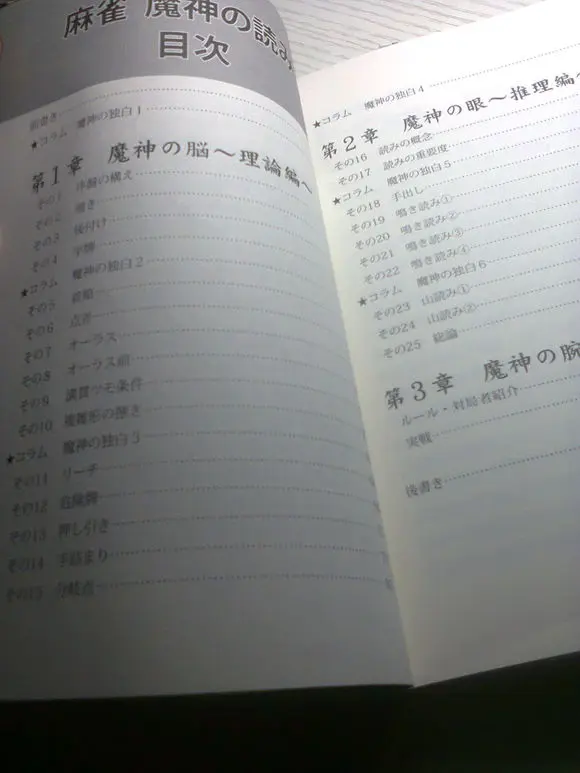 麻雀 魔神の読み
目次
前書き
★コラム 魔神の独白1
第1章 魔神の脳〜理論編〜
その1 序盤の構え
その2 鳴き
その3 後付け
その4 字牌
★コラム 魔神の独白2
その5 親船
その6 点差
その7 オーラス
その8 オーラス前
その9 満貫ツモ条件
その10 複雑形の捌き
★コラム 魔神の独白3
その11 リーチ
その12 危険牌
その13 押し引き
その14 手詰まり
その15 分岐点
★コラム 魔神の独白4
第2章 魔神の眼〜推理編〜
その16 読みの概念
その17 読みの重要度
★コラム 魔神の独白5
その18 手出し
その19 鳴き読み①
その20 鳴き読み②
その21 鳴き読み③
その22 鳴き読み④
★コラム 魔神の独白6
その23 山読み①
その24 山読み②
その25 総論
第3章 魔神の腕
ルール・対局者紹介
実戦
後書き